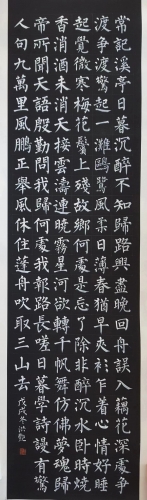 常記溪亭日暮沉醉不知歸路興盡晚回舟誤入藕花深處爭
渡爭渡驚起一灘鷗鷺風柔日薄春猶早夾衫乍着心情好睡
起覺微寒梅花鬢上殘故鄉何處是忘了除非醉沉水臥時燒
香消酒未消天接雲濤連曉霧星河欲轉千帆舞仿佛夢魂歸
帝所聞天語殷勤問我歸何處我報路長嗟日暮學詩謾有驚
人句九萬里風鵬正舉風休住蓬舟吹取三山去
戊戌冬洪